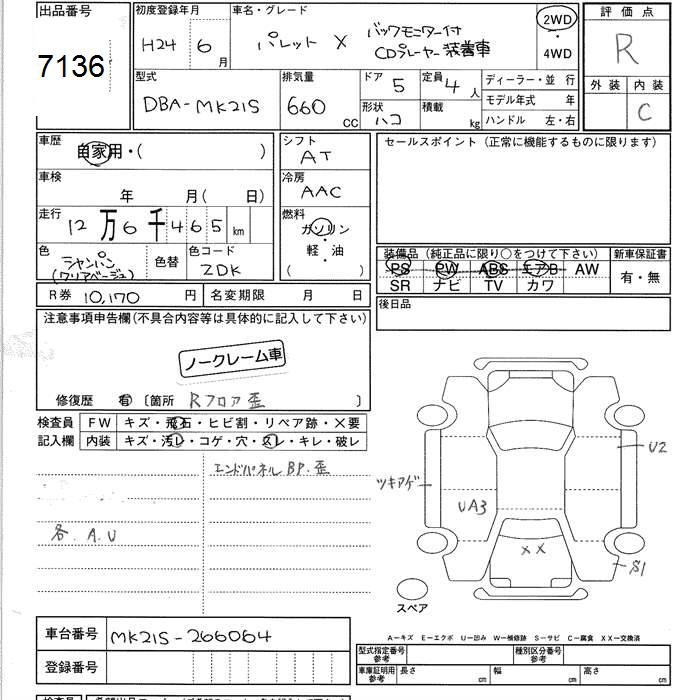 出品番号
7136
初度登録年月
H24 6月
車名・グレード
パレット X
バックモニター付
CDプレーヤー装着車
2WD
・
4WD
評価点
R
外装 内装
C
型式
DBA-MK21S
排気量
660 CC
ドア 5
定員 4人
形状 ハコ
積載 kg
ディーラー・並行
モデル年式 年
ハンドル 左・右
車歴
自家用・( )
車検
年 月( 日)
走行
12万6千465km
色
シャンパン
(クリアベージュ)
色替
色コード
ZDK
シフト
AT
冷房
AAC
燃料
ガソリン
軽・油
( )
セールスポイント(正常に機能するものに限ります)
装備品(純正品に限り○をつけて下さい)
PS PW ABS エアB AW
SR ナビ TV カワ
新車保証書
有・無
R券 10,170円
名変期限 月 日
後日品
注意事項申告欄(不具合内容等は具体的に記入して下さい)
ノークレーム車
修復歴 有 〔箇所 Rフロア歪 〕
検査員
記入欄
FW キズ・飛石・ヒビ割・リペア跡・×要
内装 キズ・汚レ・コゲ・穴・スレ・キレ・破レ
エンドパネルBP.歪
各.A.U
ツキアゲ
UA3
U2
××
S1
スペア
A−キズ E−エクボ U−凹み W−補修跡 S−サビ C−腐食 XX−交換済
車台番号 MK21S-266064
登録番号
型式指定番号
参考
種別区分番号
参考
車庫証明用
参考
長さ cm
幅 cm
高さ cm